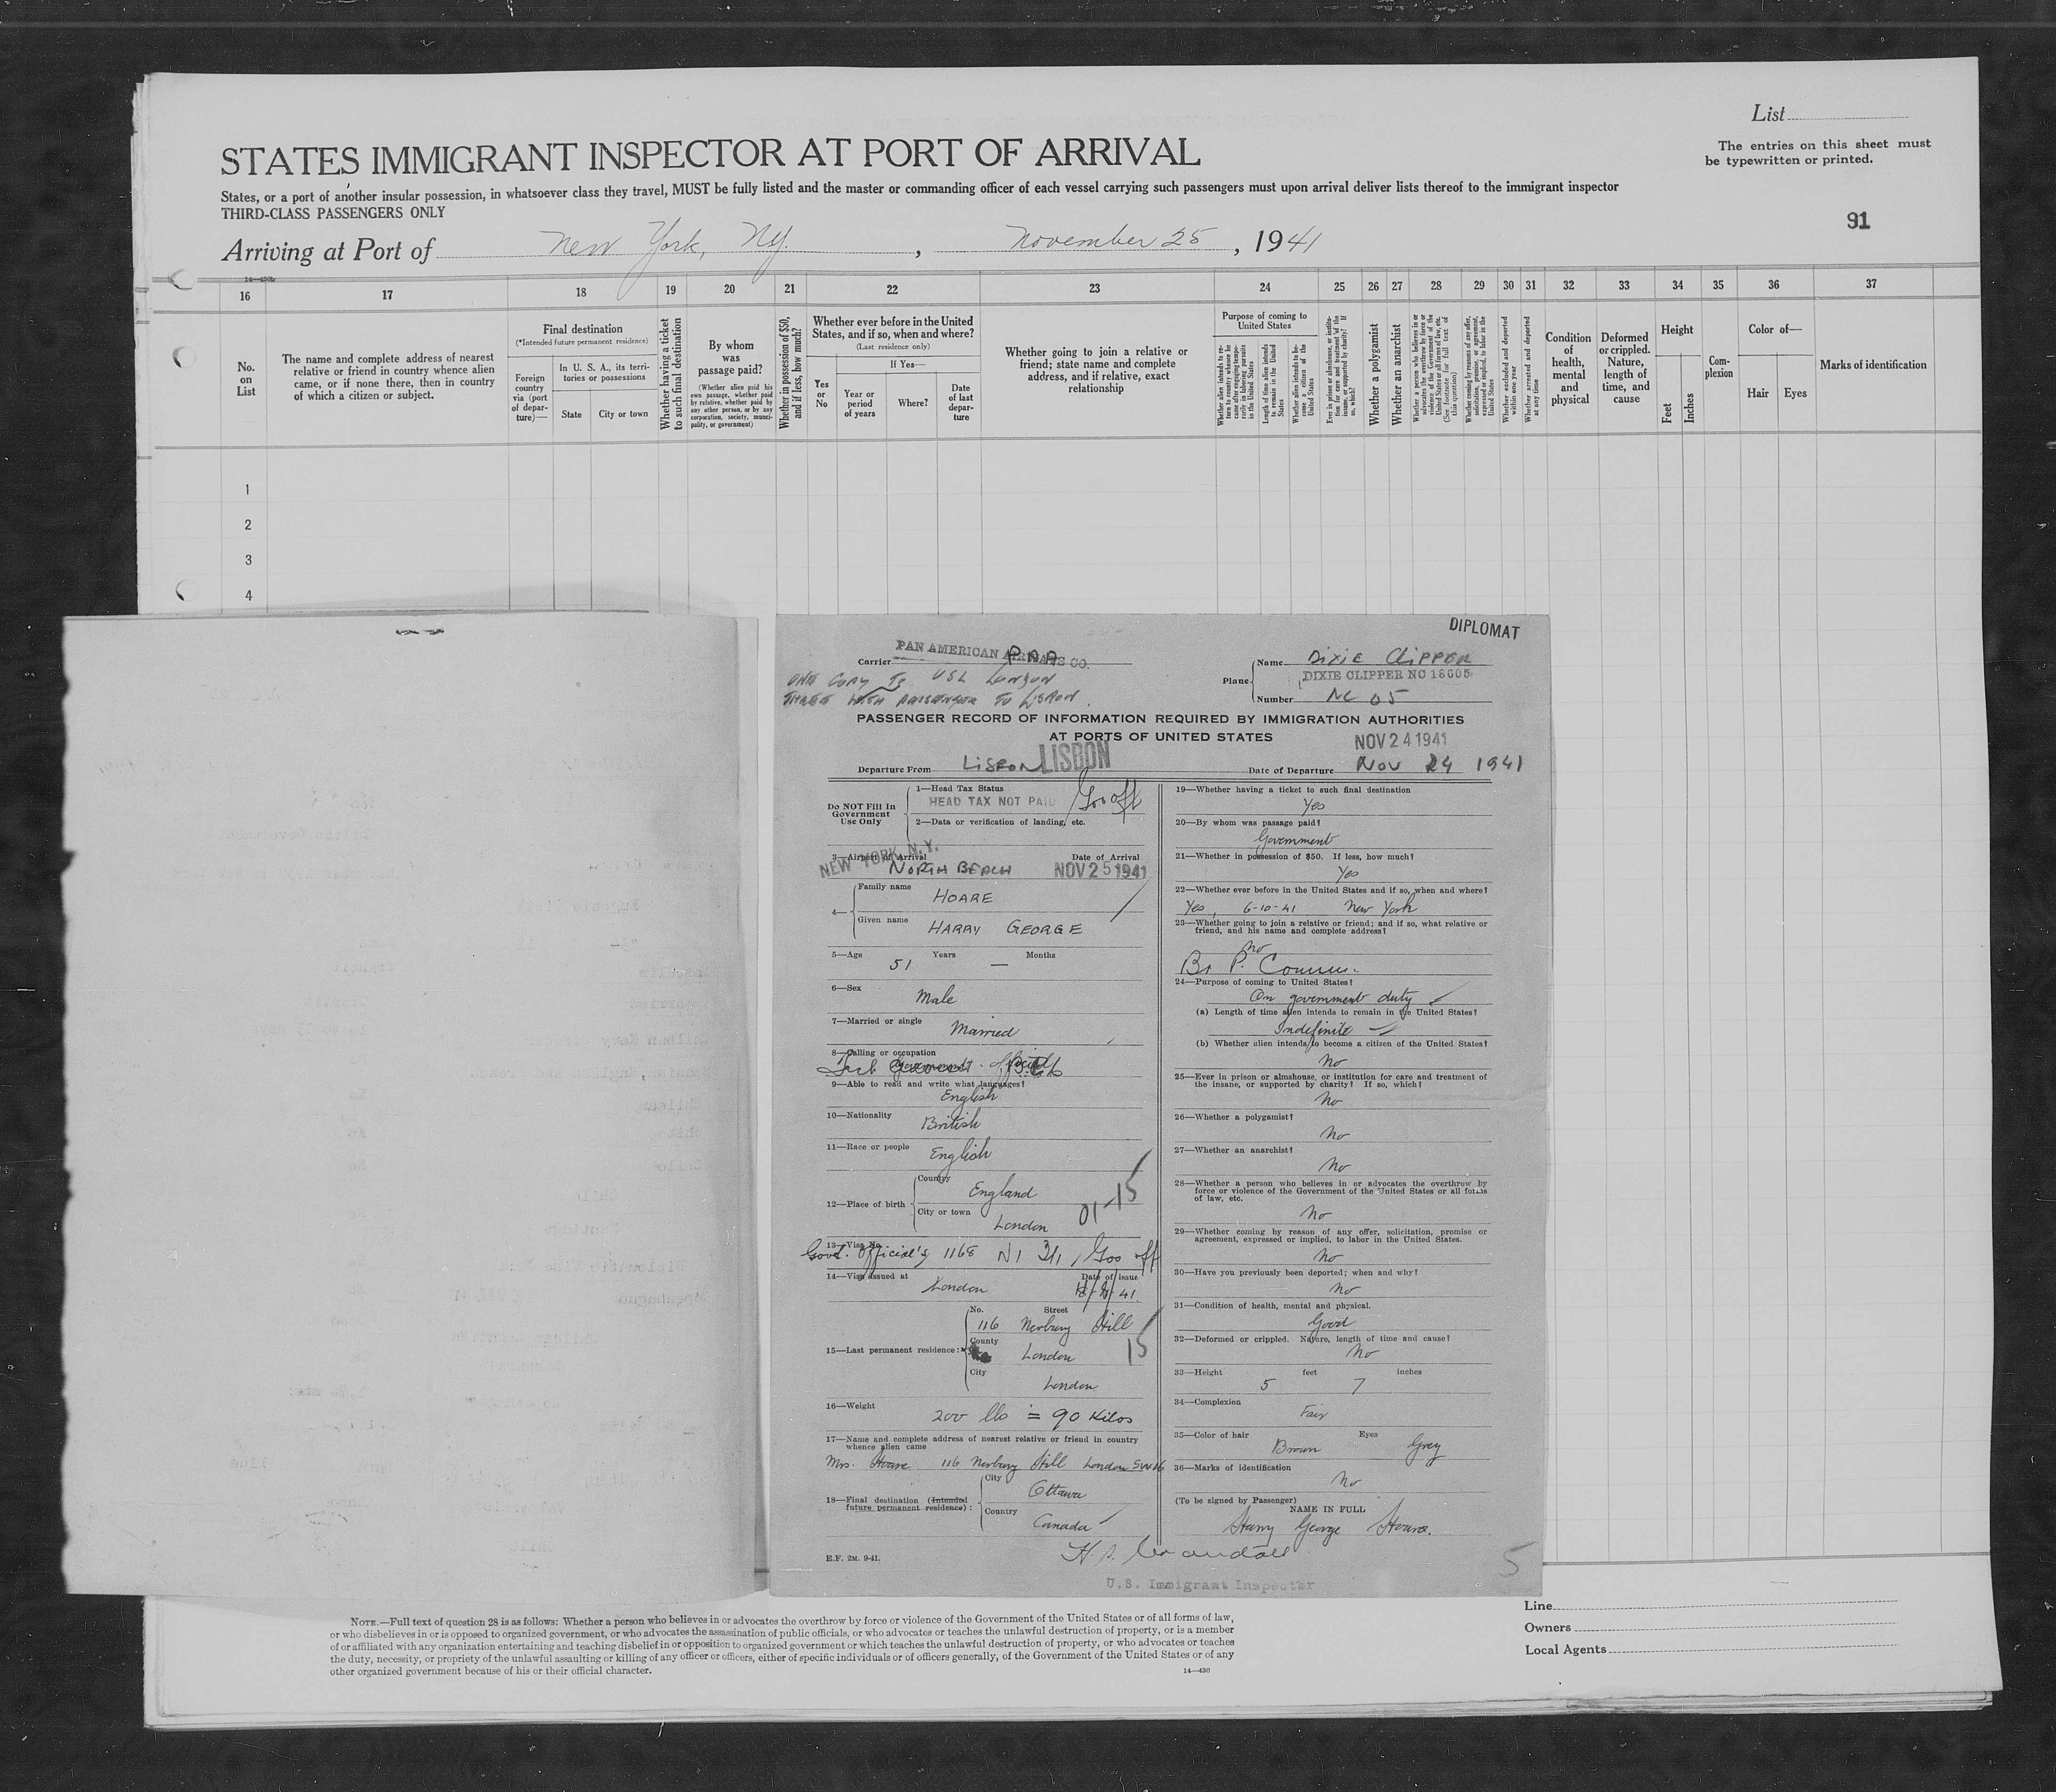 List
The entries on this sheet must
be typewritten or printed.
STATES IMMIGRANT INSPECTOR AT PORT OF ARRIVAL
States, or a port of another insular possession, in whatsoever class they travel, MUST be fully listed and the master or commanding officer of each vessel carrying such passengers must upon arrival deliver lists thereof to the immigrant inspector
THIRD-CLASS PASSENGERS ONLY
91
Arriving at Port of New York, Ny. , November 25, 1941
16 17 18 19 20 21 22 23 24 25 26 27 28 29 30 31 32 33 34 35 36 37
No. on List
The name and complete address of nearest
relative or friend in country whence alien
came, or if none there, then in country
of which a citizen or subject.
Final destination
(*Intended future permanent residence)
Foreign country via (port of departure)—
In U. S. A., its territories or possessions
State
City or town
Whether having a ticket to such final destination
By whom was passage paid?
(Whether alien paid his own passage, whether paid by relative, whether paid by any other person, or by any corporation, society, municipality, or government)
Whether in possession of $50, and if less, how much?
Whether ever before in the United
States, and if so, when and where?
(Last residence only)
Yes or No
If Yes—
Year or period of years
Where?
Date of last departure
Whether going to join a relative or
friend; state name and complete
address, and if relative, exact
relationship
Purpose of coming to United States
Whether a polygamist
Whether an anarchist
Condition of health, mental and physical
Deformed or crippled. Nature, length of time, and cause
Height
Feet
Inches
Complexion
Color of—
Hair
Eyes
Marks of identification
1
2
3
4
DIPLOMAT
Carrier PAN AMERICAN AIRWAYS CO. PAA
ONE COPY TO USL LONDON
THREE WITH PASSENGER TO LISBON.
Plane Name DIXIE CLIPPER
DIXIE CLIPPER NC 18605
Number NC 05
PASSENGER RECORD OF INFORMATION REQUIRED BY IMMIGRATION AUTHORITIES
AT PORTS OF UNITED STATES
NOV 24 1941
Departure From LISBON LISBON
Date of Departure Nov 24 1941
Do NOT Fill In Government Use Only
1—Head Tax Status
HEAD TAX NOT PAID Gov off
2—Data or verification of landing, etc.
3—Airport of Arrival
NEW YORK, N.Y.
NORTH BEACH
Date of Arrival
NOV 25 1941
4— Family name
HOARE
Given name
HARRY GEORGE
5—Age 51 Years — Months
6—Sex
Male
7—Married or single
Married
8—Calling or occupation
9—Able to read and write what languages?
English
10—Nationality
British
11—Race or people
English
12—Place of birth
Country
England
City or town
London
01-15
13—Visa No.
Govt. Official's 1168 NI 3(1) Gov off
14—Visa issued at
London
Date of issue
41
15—Last permanent residence:
No. Street
116 Norbury Hill
County
London
15
City
London
16—Weight
200 lbs = 90 Kilos
17—Name and complete address of nearest relative or friend in country
whence alien came
Mrs. Hoare 116 Norbury Hill London SW16
18—Final destination (Intended
future permanent residence):
City
Ottawa
Country
Canada
E.F. 2M. 9-41.
19—Whether having a ticket to such final destination
Yes
20—By whom was passage paid?
Government
21—Whether in possession of $50. If less, how much?
Yes
22—Whether ever before in the United States and if so, when and where?
Yes, 6-10-41 New York
23—Whether going to join a relative or friend; and if so, what relative or
friend, and his name and complete address?
No
Br P. Comm.
24—Purpose of coming to United States?
On government duty
(a) Length of time alien intends to remain in the United States?
Indefinite
(b) Whether alien intends to become a citizen of the United States?
No
25—Ever in prison or almshouse, or institution for care and treatment of
the insane, or supported by charity? If so, which?
No
26—Whether a polygamist?
No
27—Whether an anarchist?
No
28—Whether a person who believes in or advocates the overthrow by
force or violence of the Government of the United States or all forms
of law, etc.
No
29—Whether coming by reason of any offer, solicitation, promise or
agreement, expressed or implied, to labor in the United States.
No
30—Have you previously been deported; when and why?
No
31—Condition of health, mental and physical.
Good
32—Deformed or crippled. Nature, length of time and cause?
No
33—Height feet inches
5 7
34—Complexion
Fair
35—Color of hair Eyes
Brown Grey
36—Marks of identification
No
(To be signed by Passenger)
NAME IN FULL
Harry George Hoare.
U.S. Immigrant Inspector
5
NOTE.—Full text of question 28 is as follows: Whether a person who believes in or advocates the overthrow by force or violence of the Government of the United States or of all forms of law,
or who disbelieves in or is opposed to organized government, or who advocates the assassination of public officials, or who advocates or teaches the unlawful destruction of property, or is a member
of or affiliated with any organization entertaining and teaching disbelief in or opposition to organized government or which teaches the unlawful destruction of property, or who advocates or teaches
the duty, necessity, or propriety of the unlawful assaulting or killing of any officer or officers, either of specific individuals or of officers generally, of the Government of the United States or of any
other organized government because of his or their official character.
14—430
Line
Owners
Local Agents